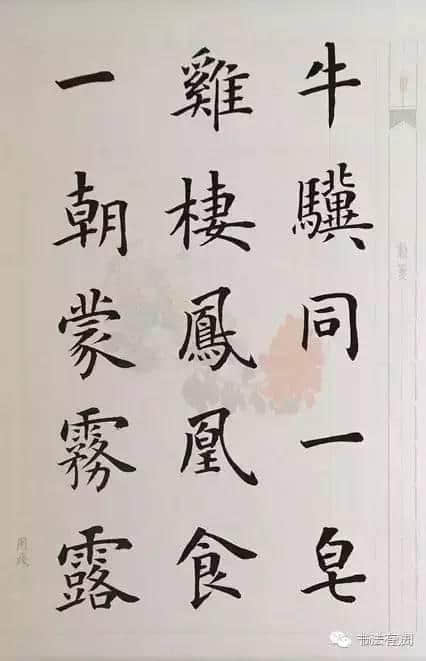 牛驥同一皂
雞棲鳳凰食
一朝蒙霧露
书法在线